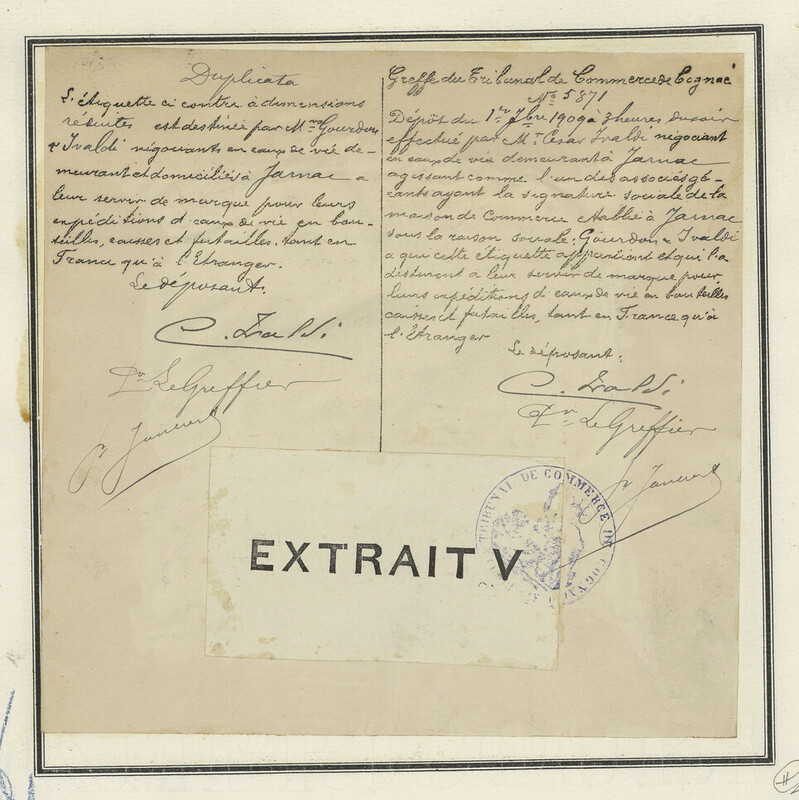 Duplicata
L'étiquette ci contre à dimensions
réduites est destinée par Mrs Gourdon
& Ivaldi négociants en eaux de vie de-
meurant et domiciliés à Jarnac a
leur servir de marque pour leurs
expéditions d'eaux de vie en bou-
teilles, caisses et futailles, tant en
France qu'à l'Etranger.
Le déposant.
C. Ivaldi
Pr Le Greffier
Greffe du Tribunal de Commerce de Cognac
No 5871
Dépôt du 1er 7bre 1909 à 3 heures du soir
effectué par Mr César Ivaldi négociant
en eaux de vie demeurant à Jarnac
agissant comme l'un des associés gé-
rants ayant la signature sociale de la
maison de Commerce établie à Jarnac
sous la raison sociale: Gourdon & Ivaldi
a qui cette étiquette appartient et qui l'a
destinent a leur servir de marque pour
leurs expéditions d'eaux de vie en bouteilles
caisses et futailles, tant en France qu'à
l'Etranger
Le déposant:
C. Ivaldi
Pr Le Greffier
TRIBUNAL DE COMMERCE DE COGNAC
EXTRAIT V